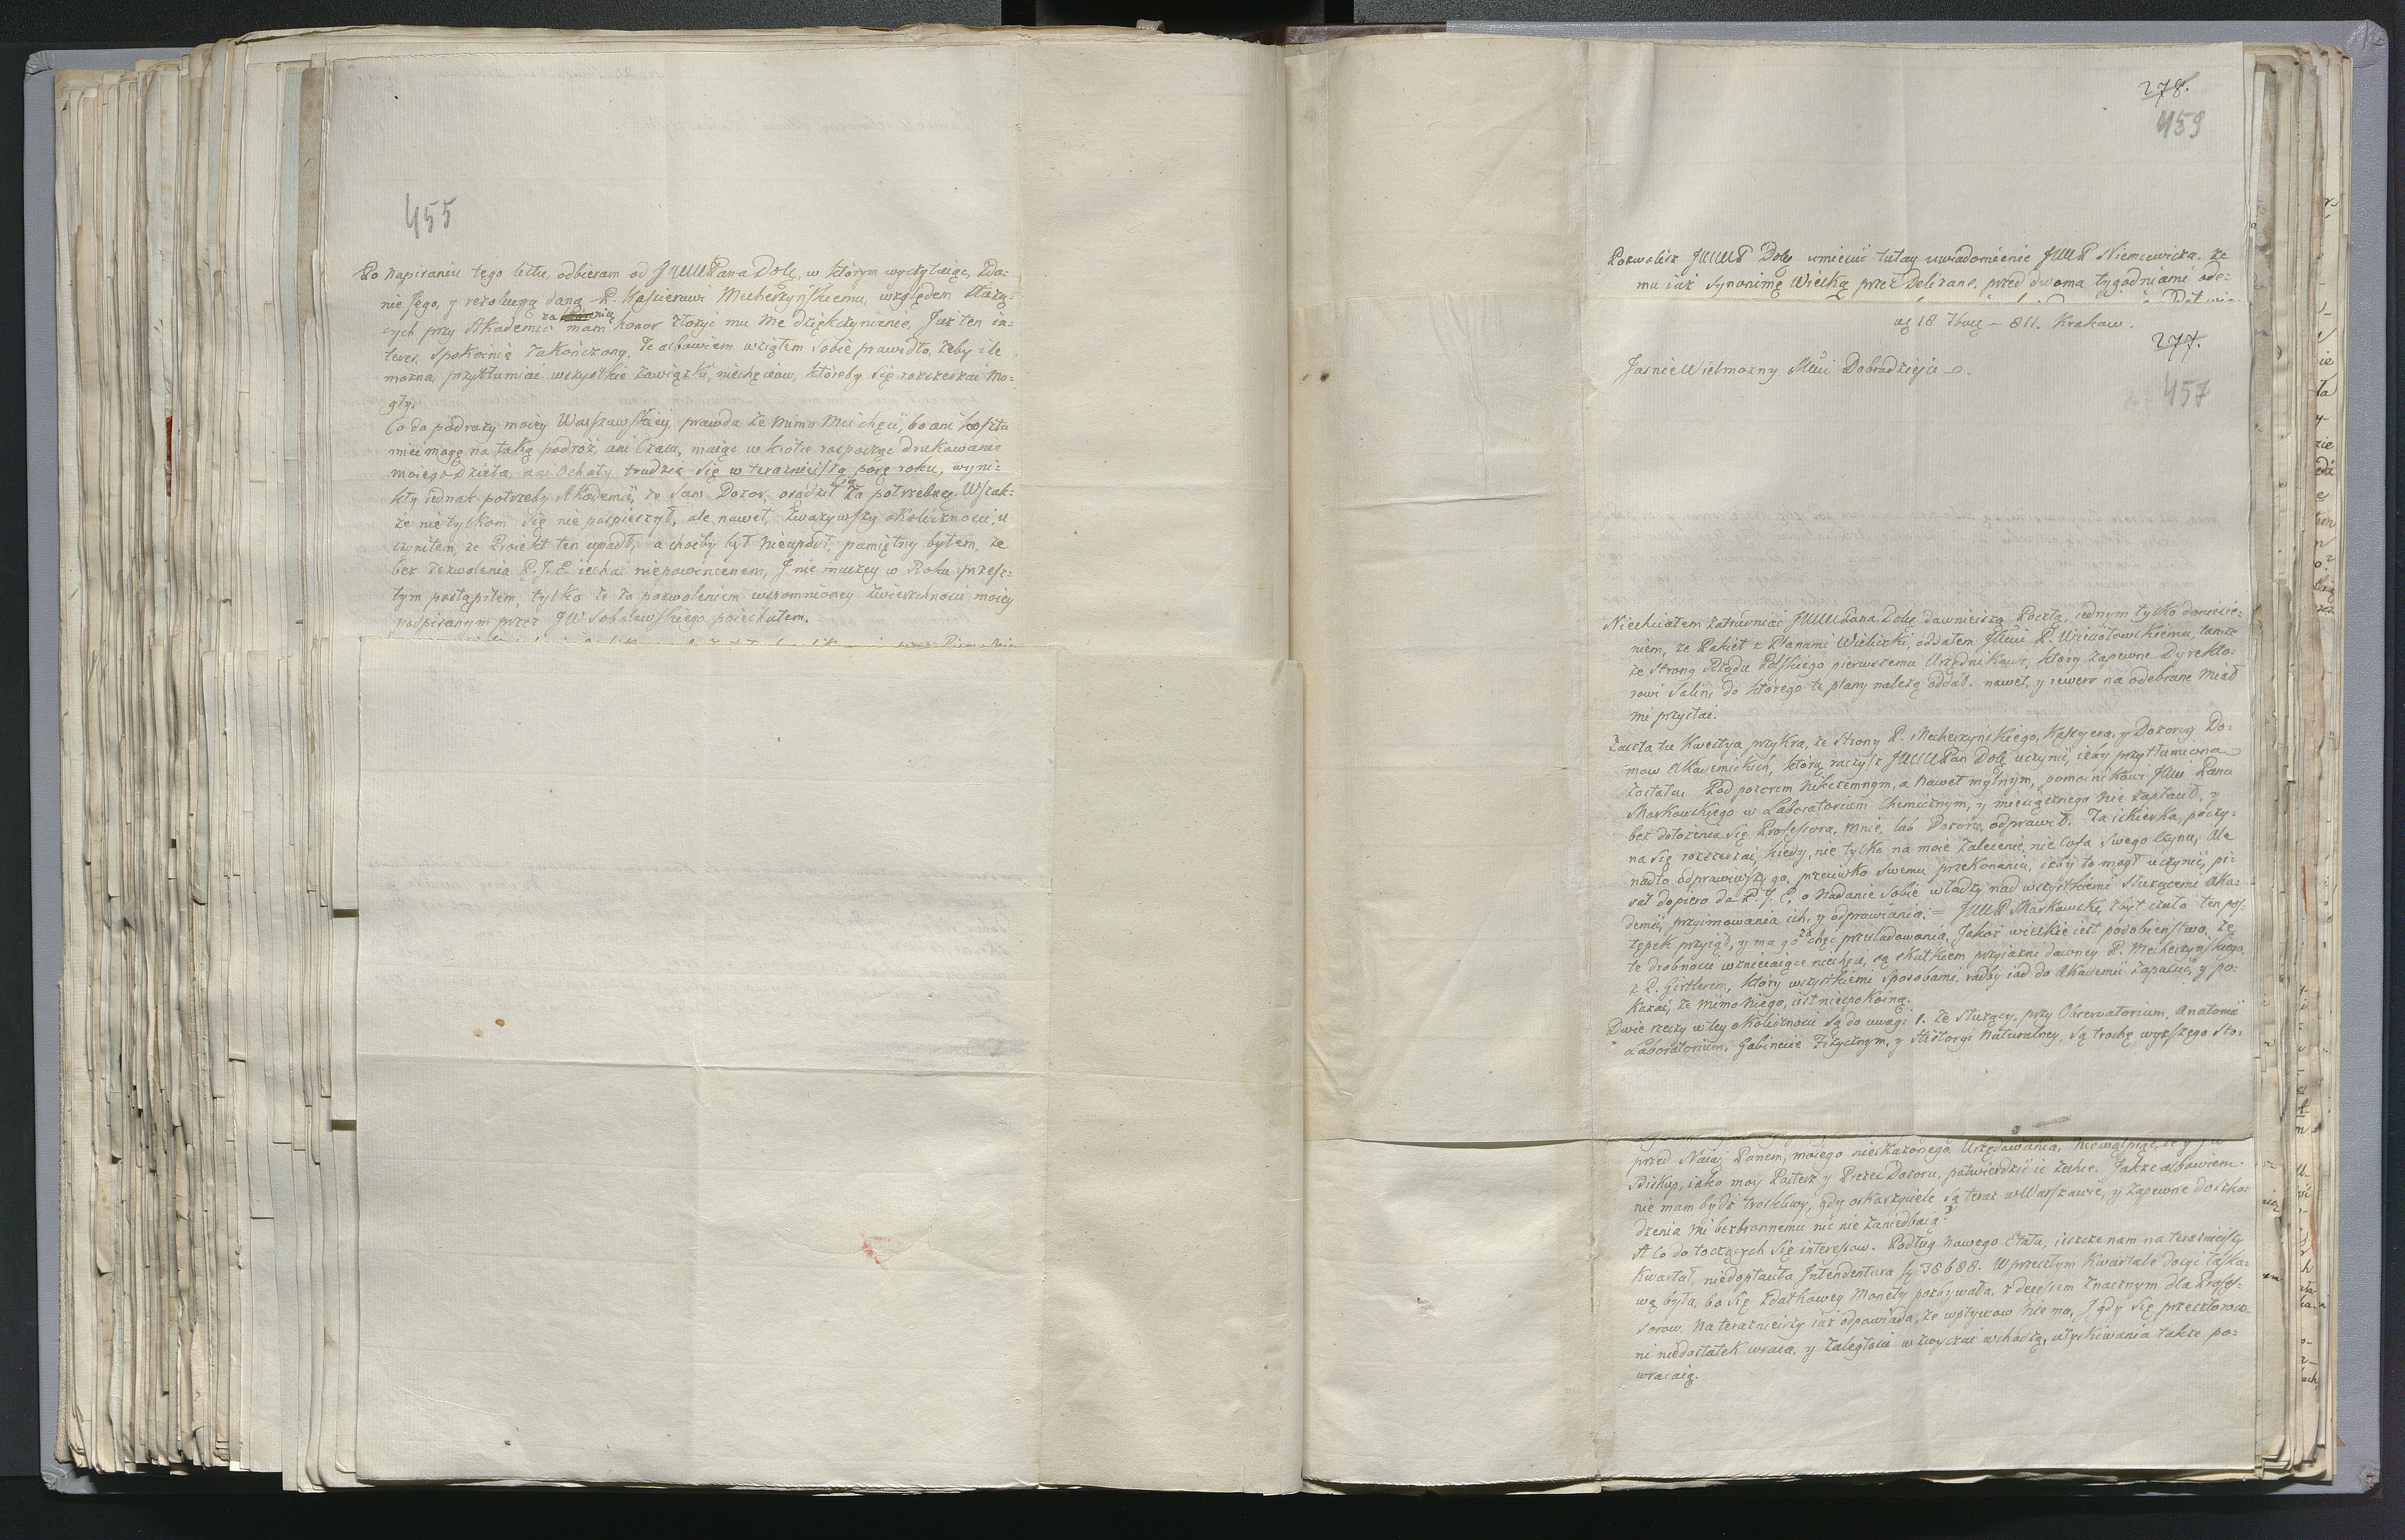 455
Po napisaniu tego listu, odbieram od JWW Pana Dobę, w którym wyczytuiąc, Zda-
nie Jego, y rezolucyą daną P. Kassierowi Mecherzyńskiemu, względem służą-
cych przy Akademii, za mam honor złożyć mu me dziękczynienie. Już ten in-
teres, spokoinie zakończony. Ze albowiem wziąłem sobie prawidło, żeby ile
można, przytłumiać wszystkie zawiązki, niechęciów, któreby się rozszerzać mo-
gły.
Co do podroży moiey Warszawskiey, prawda że mimo Mei chęci, bo ani kosztu
mieć mogę na taką podróż, ani Czasu, maiąc w krótce rozpocząć drukowanie
moiego Dzieła, ani Ochoty trudzić się w teraznieyszą porę roku, wyni-
kły iednak potrzeby Akademii, że sam Dozor, osądził ią za potrzebną. Wszak-
że nie tylkom się nie pospieszył, ale nawet, zważywszy okoliczności, u
czyniłem, że Proiekt ten upadł; a choćby był nieupadł, pamiętny byłem, że
bez zezwolenia P. J. E. iechać niepowinienem, J nie inaczey w Roku przesz-
łym postąpiłem, tylko że za pozwoleniem wspomnioney zwierzchności moiey
podpisanym przez JW Sobolewskiego poiechałem.
278.
459
Pozwolisz JWW Dobę umieścić tutay uwiadomienie JWW Niemcewicza, że
mu iuż Synonimę Wielką przez Delizans, przed dwoma tygodniami ode-
ag 18 Xbrę – 811. Krakow.
277.
457
Jasnie Wielmozny Mści Dobrodzieju
Niechciałem zatrudniać JWW Pana Dobę dawnieiszą Pocztą, iednym tylko doniesie-
niem, że Pakiet z Planami Wieliczki, oddałem JWW P. Wiesiołowskiemu, tamże
ze Strony Rządu Polskiego pierwszemu Urzędnikowi, który zapewne Dyrekto-
rowi Salin, do którego te plany należą oddał. nawet, y rewers na odebrane miał
mi przysłać.
Zaszła tu Kwestya przykra, ze strony P. Mecherzynskiego, Kassyera, y Dozorcy Do-
mow Akademickich, którą raczysz JWW Pan Dobę uczynić, iżby przytłumiona
została. Pod pozorem nikczemnym, a nawet mylnym, pomocnikowi JWW Pana
Markowskiego w Laboratorium Chemicznym, y miesięcznego nie zapłacił, y
bez dołożenia się Professora, mnie, lub Dozoru, odprawił. Ta iskierka, poczy-
na się rozszerzać, kiedy, nie tylko na moie zalecenie, nie cofa swego czynu, Ale
nadto odprawiwszy go, przeciwko swemu przekonaniu, iżby to mogł uczynić, pi-
sał dopiero do P. J. E. o Nadanie sobie władzy nad wszystkiemi służącemi Aka-
demii, przyimowania ich, y odprawiania. = JWW Markowski, zbyt czuło ten pos-
tępek przyiął, y ma go za chęć prześladowania. Jakoż wielkie iest podobieństwo, że
te drobności wzniecaiące niechęci, są skutkiem przyiaźni dawney P. Mecherzyńskiego,
z P. Girtlerem, który wszystkiemi sposobami, radby iad do Akademii zapuścić, y po-
kazać, że mimo niego, iest niespokoiną.
Dwie rzeczy w tey okoliczności są do uwagi 1. że służący, przy Obserwatorium, Anatomii
Laboratorium, Gabinecie Fizycznym, y Historyi Naturalney, są trochę wyższego sto-
przed Naiaś. Panem, moiego nieskażonego Urzędowania,
Biskup, iako moy Pasterz y Prezes Dozoru, potwierdzić ie zechce. Jakże albowiem
nie mam bydź troskliwy, gdy oskarżyciele są teraz w Warszawie, y zapewne do szko-
dzenia mi bezbronnemu nic nie zaniedbaią?
A Co do toczących się interessow. Podług nowego Etatu, ieszcze nam na terazniejszy
Kwartał, niedopłaciła Jntendentura fp 38688. W przeszłym Kwartale dosyć łaska-
wą była, bo się zdatkowey Monety pozbywała, z decesem znacznym dla Profes-
sorow. Na terazniejszy iuż odpowiada, że wpływow nie ma, J gdy się przeszłorocz-
ni niedostatek wraca, y zaległości w zwyczai wchodzą, utyskiwania także po-
wracaią.